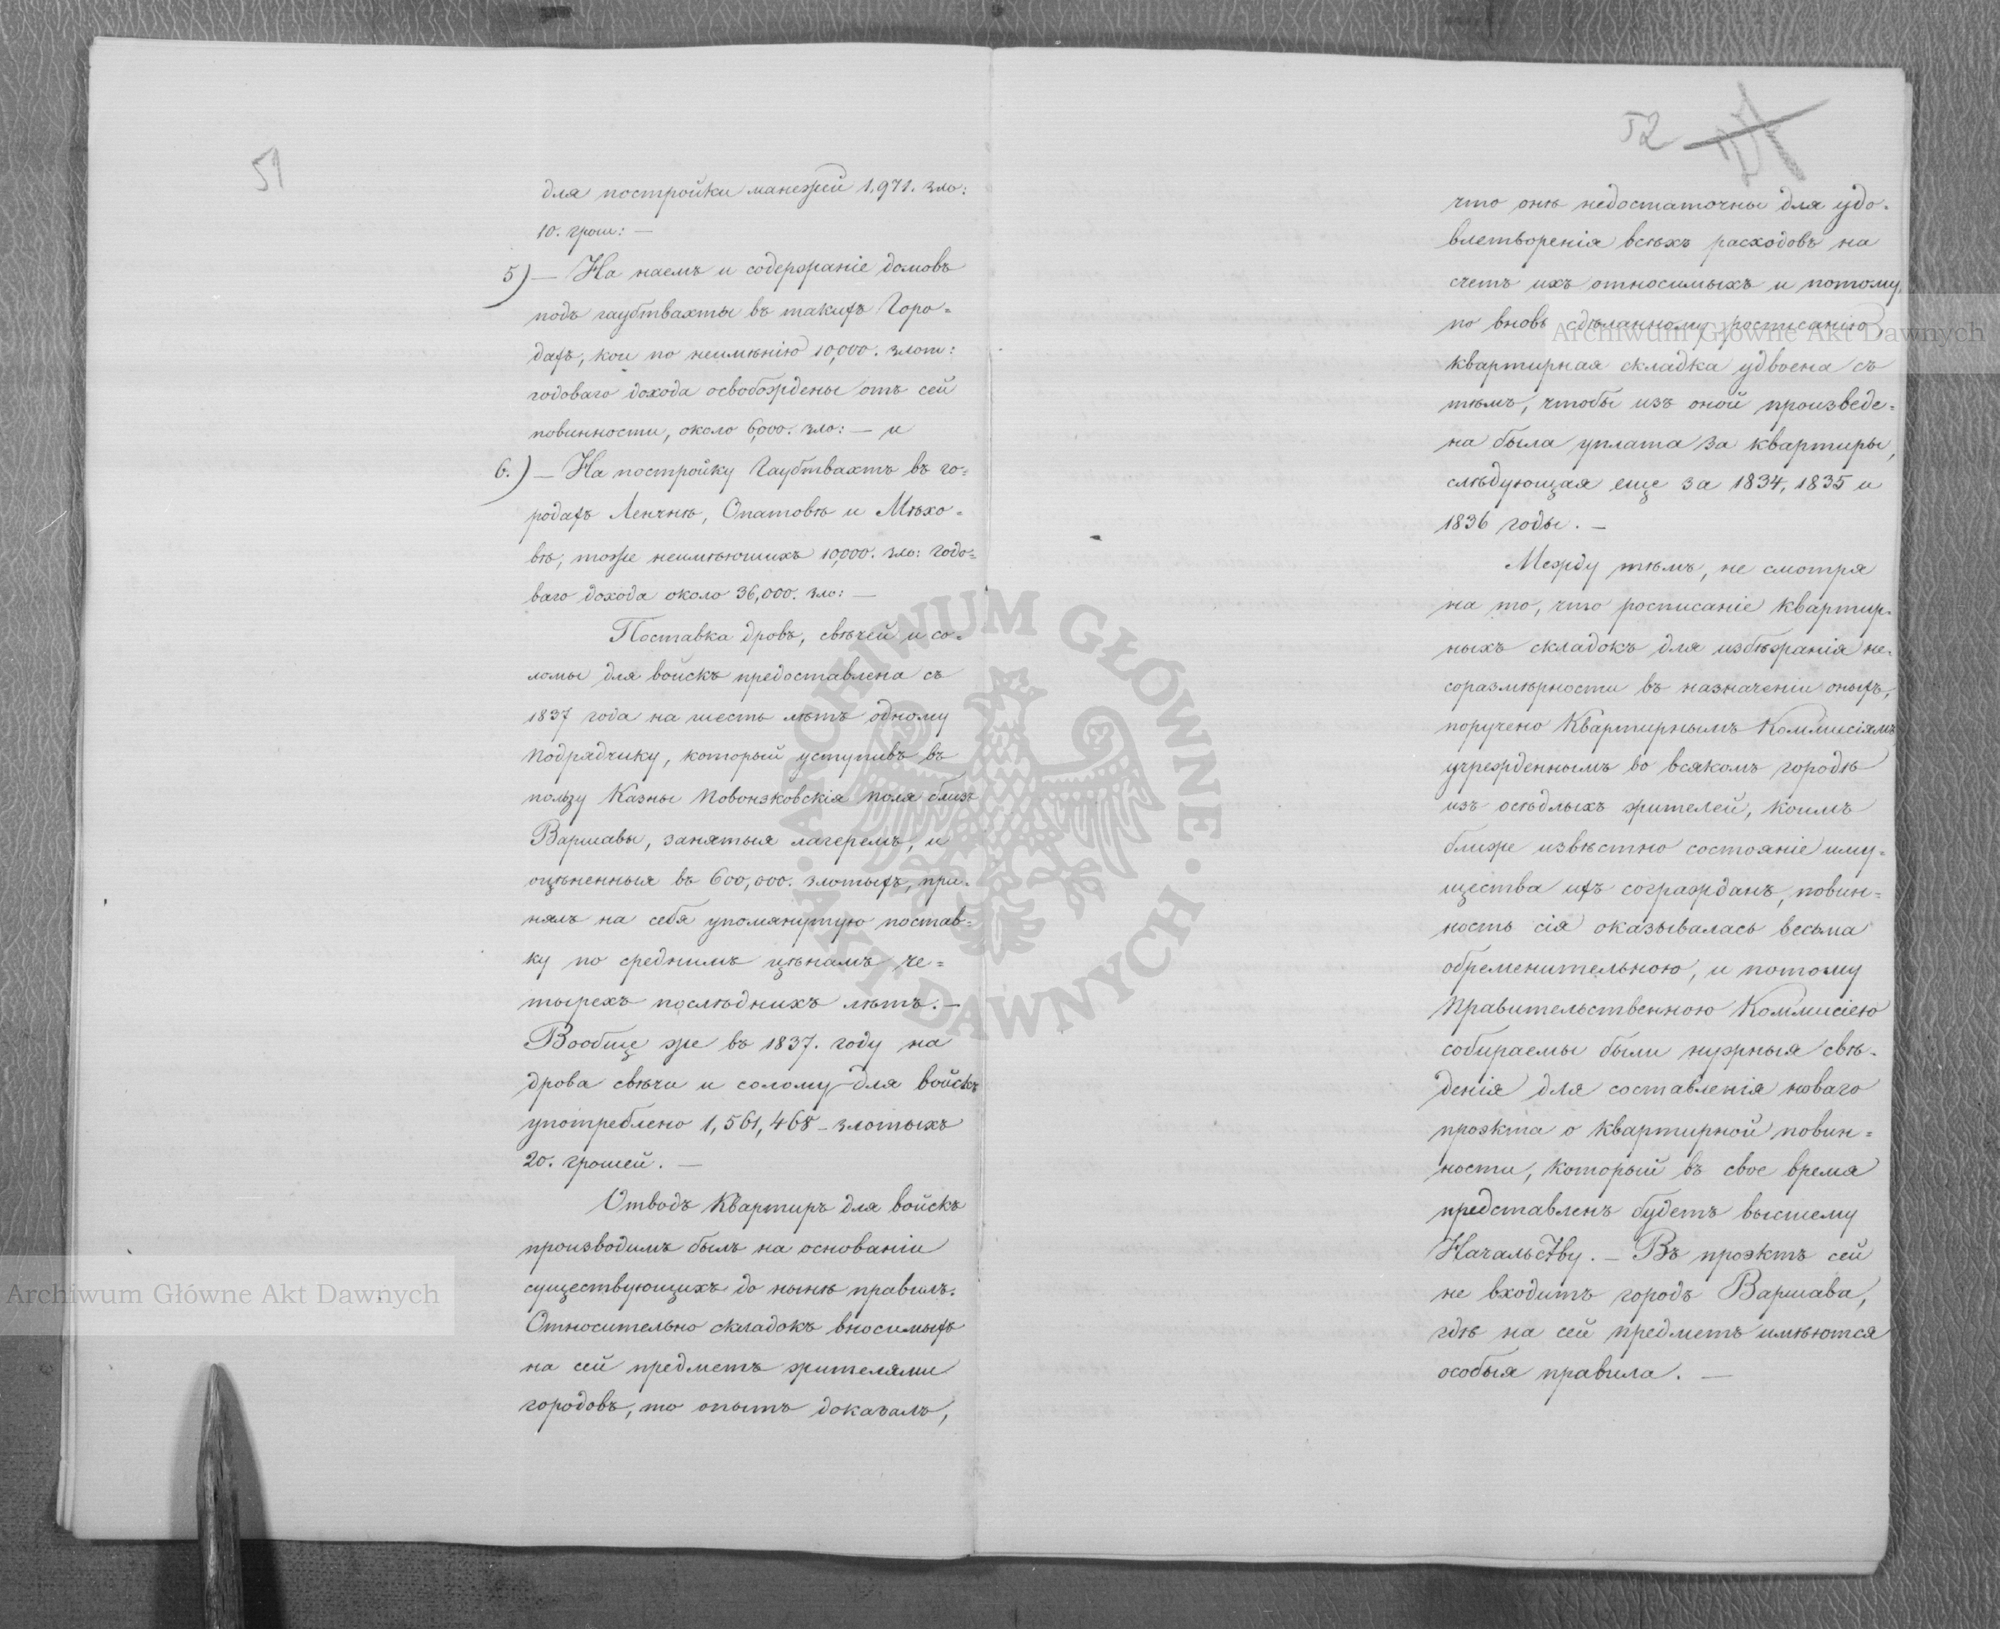 51
для постройки манежей 1,971. зло:
10. грош: —
5) — На наемъ и содержаніе домовъ
подъ гаубтвахты въ такихъ Горо=
дахъ, кои по неимѣнію 10,000. злот:
годоваго дохода освобождены отъ сей
повинности, около 6,000. зло: — и
6.) — На постройку Гаубтвахтъ въ го=
родахъ Ленчнѣ, Опатовѣ и Мѣхо=
вѣ, тоже неимѣющихъ 10,000. зло: годо=
ваго дохода около 36,000. зло: —
Поставка дровъ, свѣчей и со=
ломы для войскъ предоставлена съ
1837 года на шесть лѣтъ одному
Подрядчику, который уступивъ въ
пользу Казны Повонзковскія поля близъ
Варшавы, занятыя лагеремъ, и
оцѣненныя въ 600,000. злотыхъ, при=
нялъ на себя упомянутую постав=
ку по среднимъ цѣнамъ че=
тырехъ послѣднихъ лѣтъ. —
Вообще же въ 1837. году на
дрова свѣчи и солому для войскъ
употреблено 1,561,468 - злотыхъ
20. грошей. —
Отводъ Квартиръ для войскъ
производимъ былъ на основаніи
существующихъ до нынѣ правилъ.
Относительно складокъ вносимыхъ
на сей предметъ жителями
городовъ, то опытъ доказалъ,
52
что онѣ недостаточны для удо=
влетворенія всѣхъ расходовъ на
счетъ ихъ относимыхъ и потому,
по вновь сдѣланному росписанію,
квартирная складка удвоена съ
тѣмъ, чтобы изъ оной произведе=
на была уплата за квартиры,
слѣдующая еще за 1834, 1835 и
1836 годы. —
Между тѣмъ, не смотря
на то, что росписаніе квартир=
ныхъ складокъ для избѣжанія не=
соразмѣрности въ назначеніи оныхъ,
поручено Квартирнымъ Коммисіямъ
учрежденнымъ во всякомъ городѣ
изъ осѣдлыхъ жителей, коимъ
ближе извѣстно состояніе иму=
щества ихъ согражданъ, повин=
ность сія оказывалась весьма
обременительною, и потому
Правительственною Коммисіею
собираемы были нужныя свѣ=
денія для составленія новаго
проэкта о квартирной повин=
ности, который въ свое время
представленъ будетъ высшему
Начальству. — Въ проэктъ сей
не входитъ городъ Варшава,
гдѣ на сей предметъ имѣются
особыя правила. —
Archiwum Główne Akt Dawnych
Archiwum Główne Akt Dawnych
ARCHIWUM GŁÓWNE · AKT DAWNYCH ·